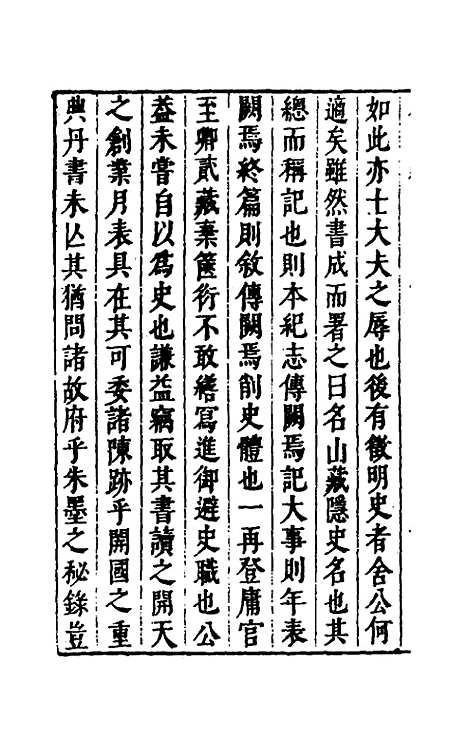 如此亦士大夫之辱也後有徵明史者舍公何
適矣雖然書成而署之曰名山藏隱史名也其
總而稱記也則本紀志傳闕焉記大事則年表
闕焉終篇則敘傳闕焉削史體也一再登庸官
至卿貳藏棄篋衍不敢繕寫進御避史職也公
益未嘗自以爲史也謙益竊取其書讀之開天
之創業月表具在其可委諸陳跡乎開國之重
典丹書未亾其猶問諸故府乎朱墨之秘錄豈